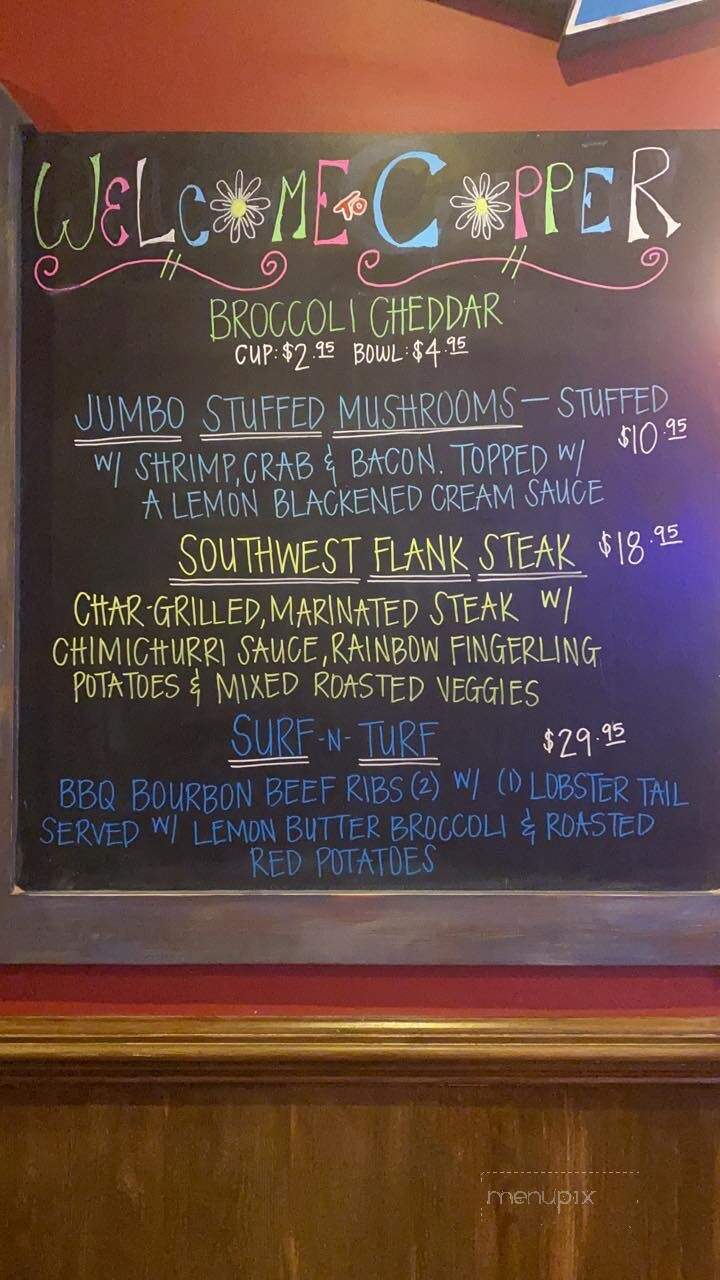 WELCOME TO COPPER
BROCCOLI CHEDDAR
CUP: $2.95 BOWL: $4.95
JUMBO STUFFED MUSHROOMS - STUFFED
$10.95
W/ SHRIMP, CRAB & BACON. TOPPED W/
A LEMON BLACKENED CREAM SAUCE
SOUTHWEST FLANK STEAK $18.95
CHAR-GRILLED, MARINATED STEAK W/
CHIMICHURRI SAUCE, RAINBOW FINGERLING
POTATOES & MIXED ROASTED VEGGIES
SURF-N-TURF $29.95
BBQ BOURBON BEEF RIBS (2) W/ (1) LOBSTER TAIL
SERVED W/ LEMON BUTTER BROCCOLI & ROASTED
RED POTATOES
menupix